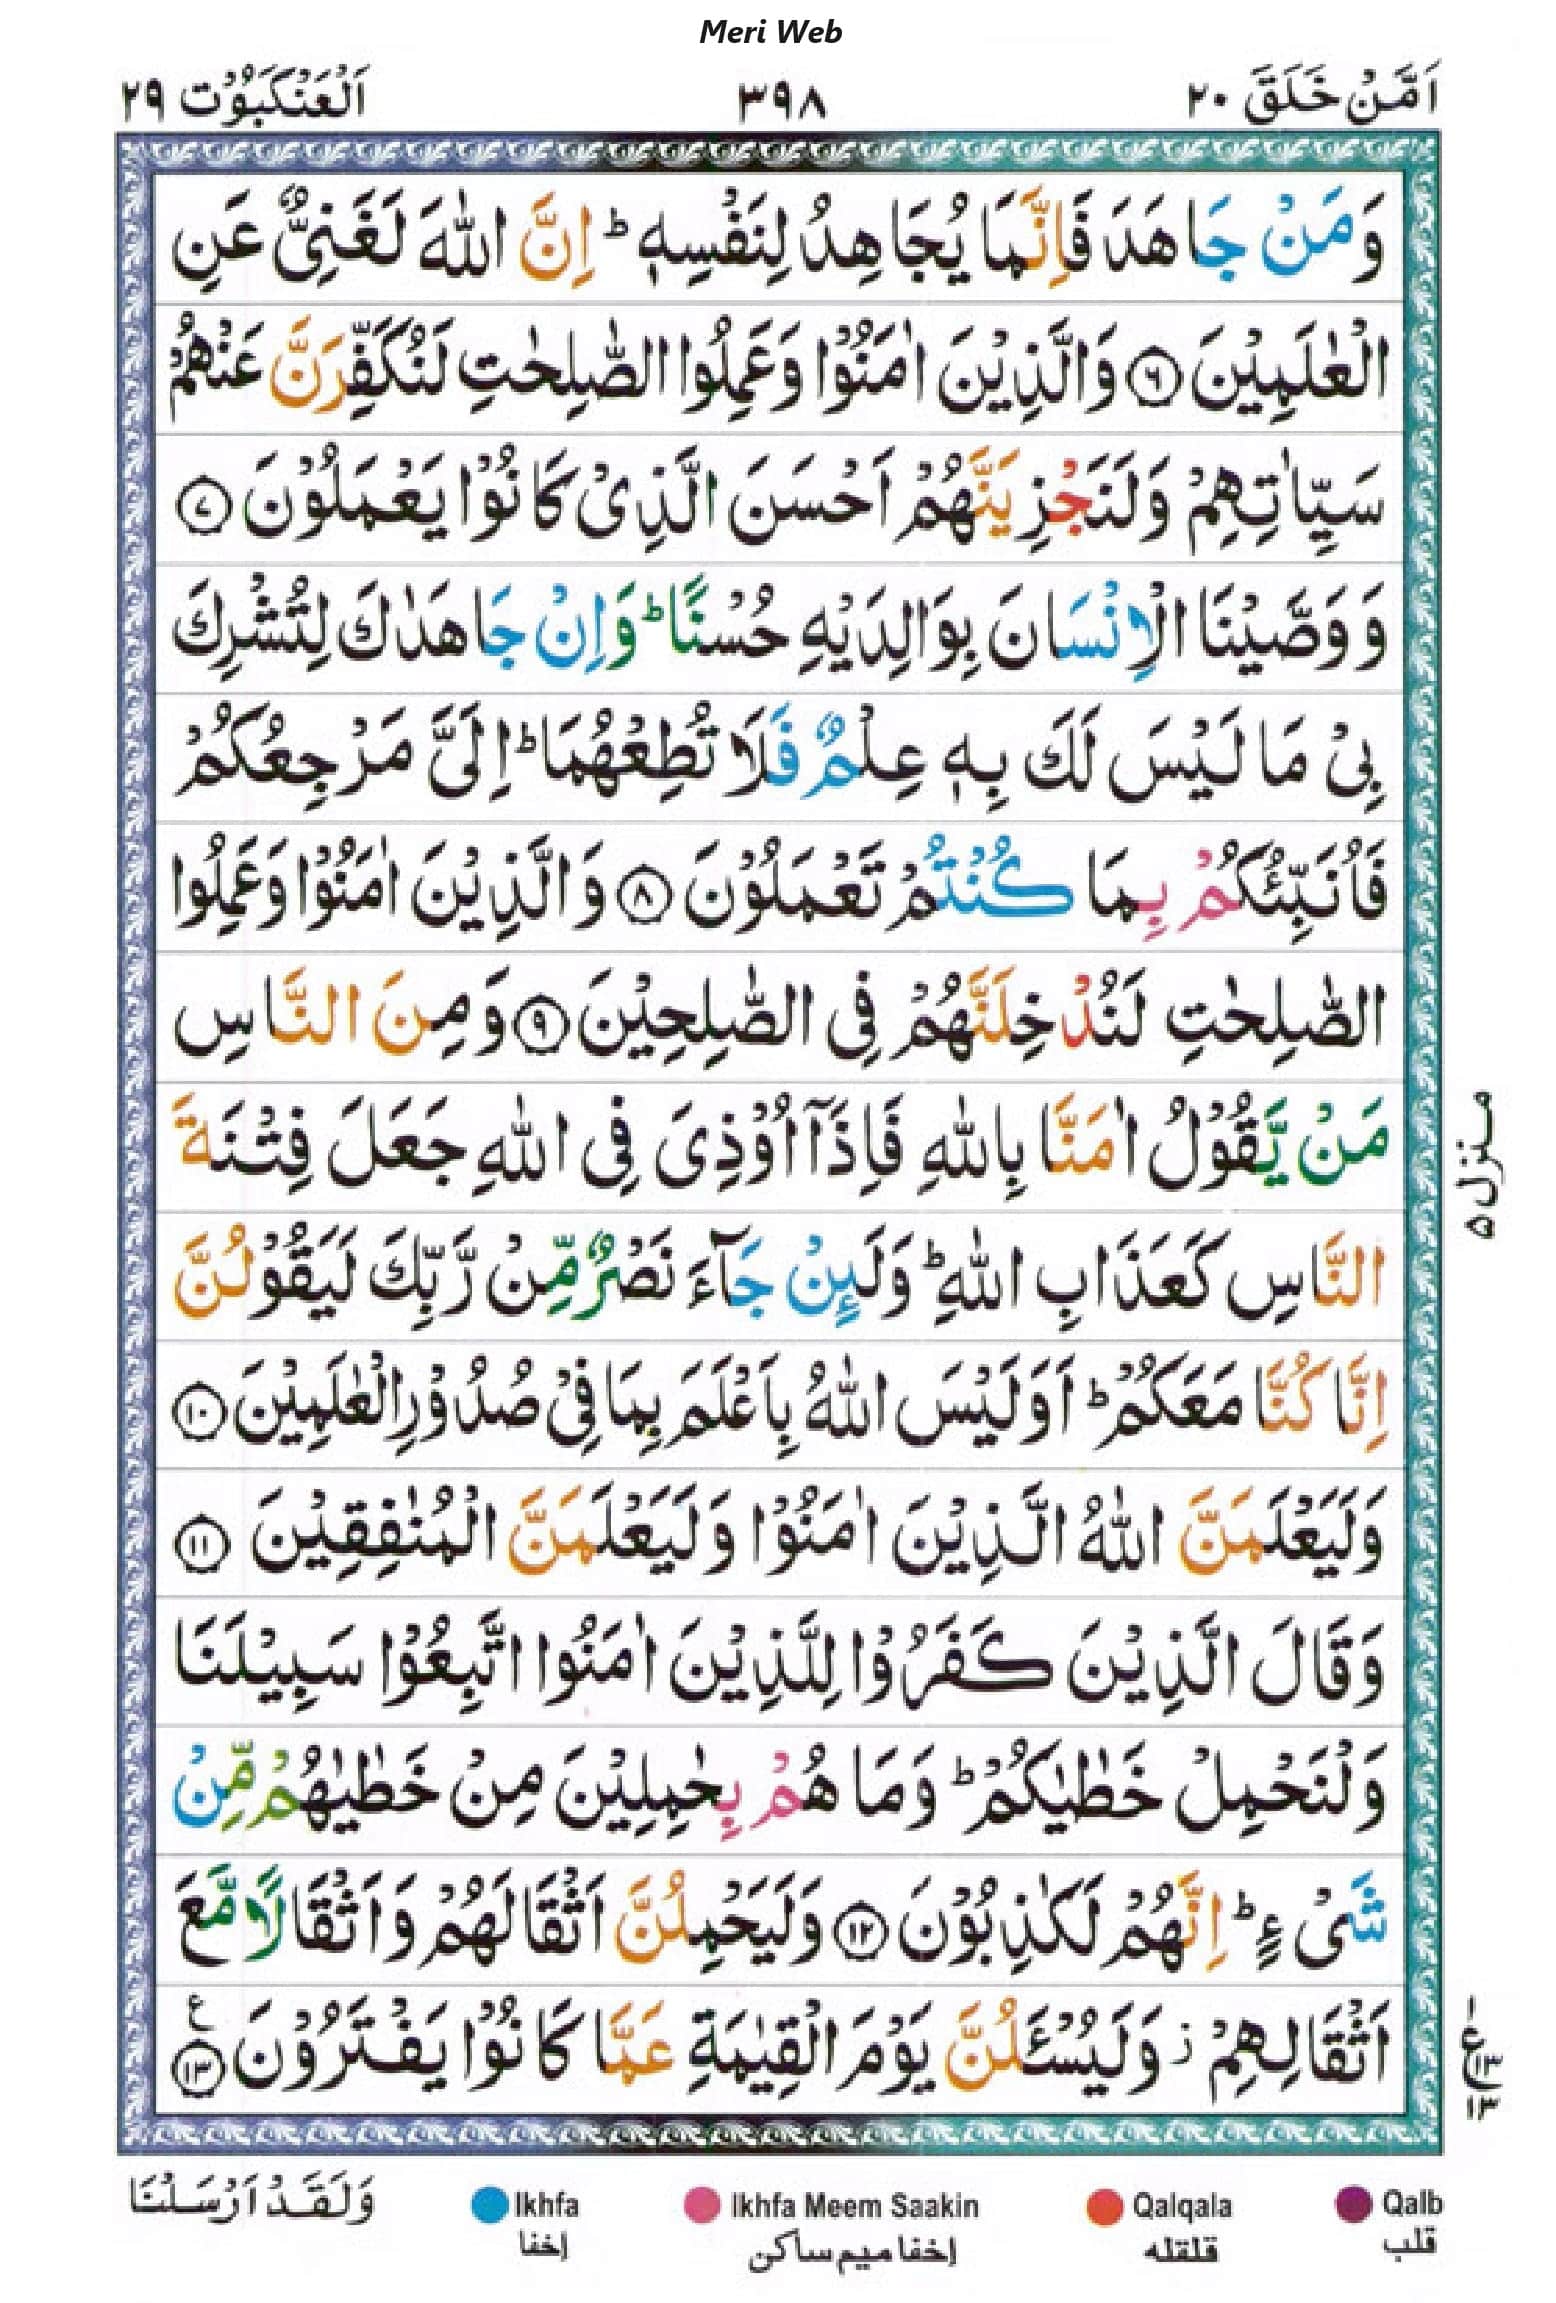 Meri Web
اَمَّنْ خَلَقَ ٢٠
٣٩٨
اَلْعَنْكَبُوْت ٢٩
وَمَنْ جَاهَدَ فَاِنَّمَا يُجَاهِدُ لِنَفْسِهٖ ؕ اِنَّ اللّٰهَ لَغَنِىٌّ عَنِ
الْعٰلَمِيْنَ ۝٦ وَالَّذِيْنَ اٰمَنُوْا وَعَمِلُوا الصّٰلِحٰتِ لَنُكَفِّرَنَّ عَنْهُمْ
سَيِّاٰتِهِمْ وَلَنَجْزِيَنَّهُمْ اَحْسَنَ الَّذِىْ كَانُوْا يَعْمَلُوْنَ ۝٧
وَوَصَّيْنَا الْاِنْسَانَ بِوَالِدَيْهِ حُسْنًا ؕ وَاِنْ جَاهَدٰكَ لِتُشْرِكَ
بِىْ مَا لَيْسَ لَكَ بِهٖ عِلْمٌ فَلَا تُطِعْهُمَا ؕ اِلَىَّ مَرْجِعُكُمْ
فَاُنَبِّئُكُمْ بِمَا كُنْتُمْ تَعْمَلُوْنَ ۝٨ وَالَّذِيْنَ اٰمَنُوْا وَعَمِلُوا
الصّٰلِحٰتِ لَنُدْخِلَنَّهُمْ فِى الصّٰلِحِيْنَ ۝٩ وَمِنَ النَّاسِ
مَنْ يَّقُوْلُ اٰمَنَّا بِاللّٰهِ فَاِذَآ اُوْذِىَ فِى اللّٰهِ جَعَلَ فِتْنَةَ
النَّاسِ كَعَذَابِ اللّٰهِ ؕ وَلَئِنْ جَآءَ نَصْرٌ مِّنْ رَّبِّكَ لَيَقُوْلُنَّ
اِنَّا كُنَّا مَعَكُمْ ؕ اَوَلَيْسَ اللّٰهُ بِاَعْلَمَ بِمَا فِىْ صُدُوْرِ الْعٰلَمِيْنَ ۝١٠
وَلَيَعْلَمَنَّ اللّٰهُ الَّذِيْنَ اٰمَنُوْا وَلَيَعْلَمَنَّ الْمُنٰفِقِيْنَ ۝١١
وَقَالَ الَّذِيْنَ كَفَرُوْا لِلَّذِيْنَ اٰمَنُوا اتَّبِعُوْا سَبِيْلَنَا
وَلْنَحْمِلْ خَطٰيٰكُمْ ؕ وَمَا هُمْ بِحٰمِلِيْنَ مِنْ خَطٰيٰهُمْ مِّنْ
شَىْءٍ ؕ اِنَّهُمْ لَكٰذِبُوْنَ ۝١٢ وَلَيَحْمِلُنَّ اَثْقَالَهُمْ وَاَثْقَالًا مَّعَ
اَثْقَالِهِمْ ز وَلَيُسْـَٔلُنَّ يَوْمَ الْقِيٰمَةِ عَمَّا كَانُوْا يَفْتَرُوْنَ ۝١٣ ع
منزل ۵
ع ١٣ ١٣
وَلَقَدْ اَرْسَلْنَا
Ikhfa
إخفا
Ikhfa Meem Saakin
إخفا ميم ساكن
Qalqala
قلقله
Qalb
قلب